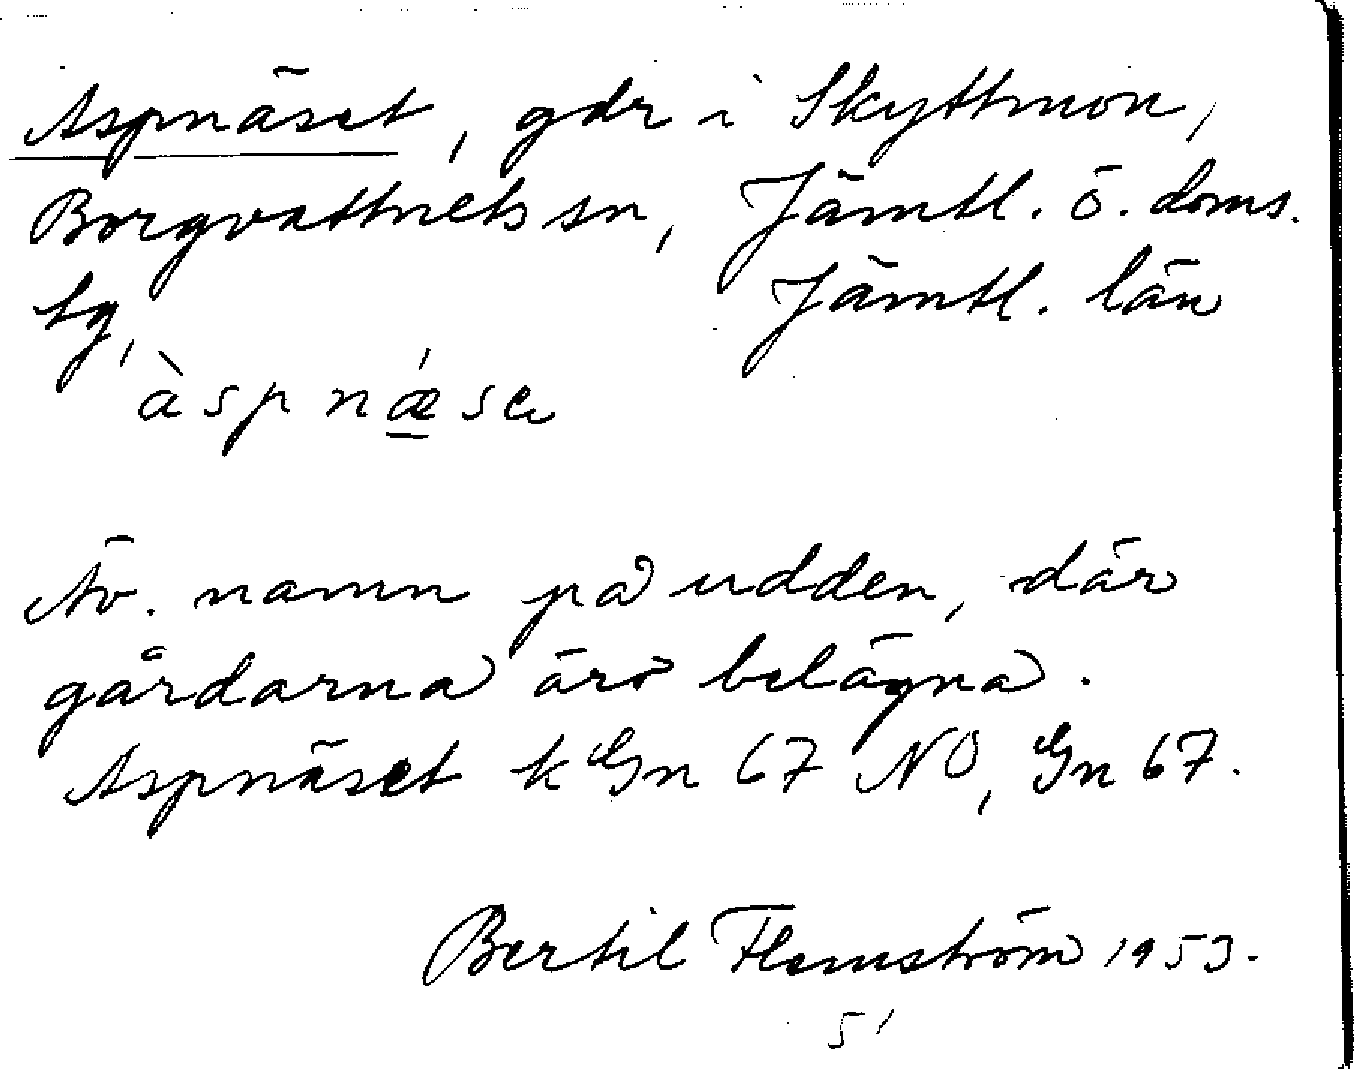 Aspnäset, gdr i Skyttmon,
Borgvattnets sn, Jämtl. ö. doms.
tg, Jämtl. län
àspnǽse
Äv. namn på udden, där
gårdarna äro belägna.
Aspnäset k Gn 67 NO, Gn 67.
Bertil Flemström 1953.
5'